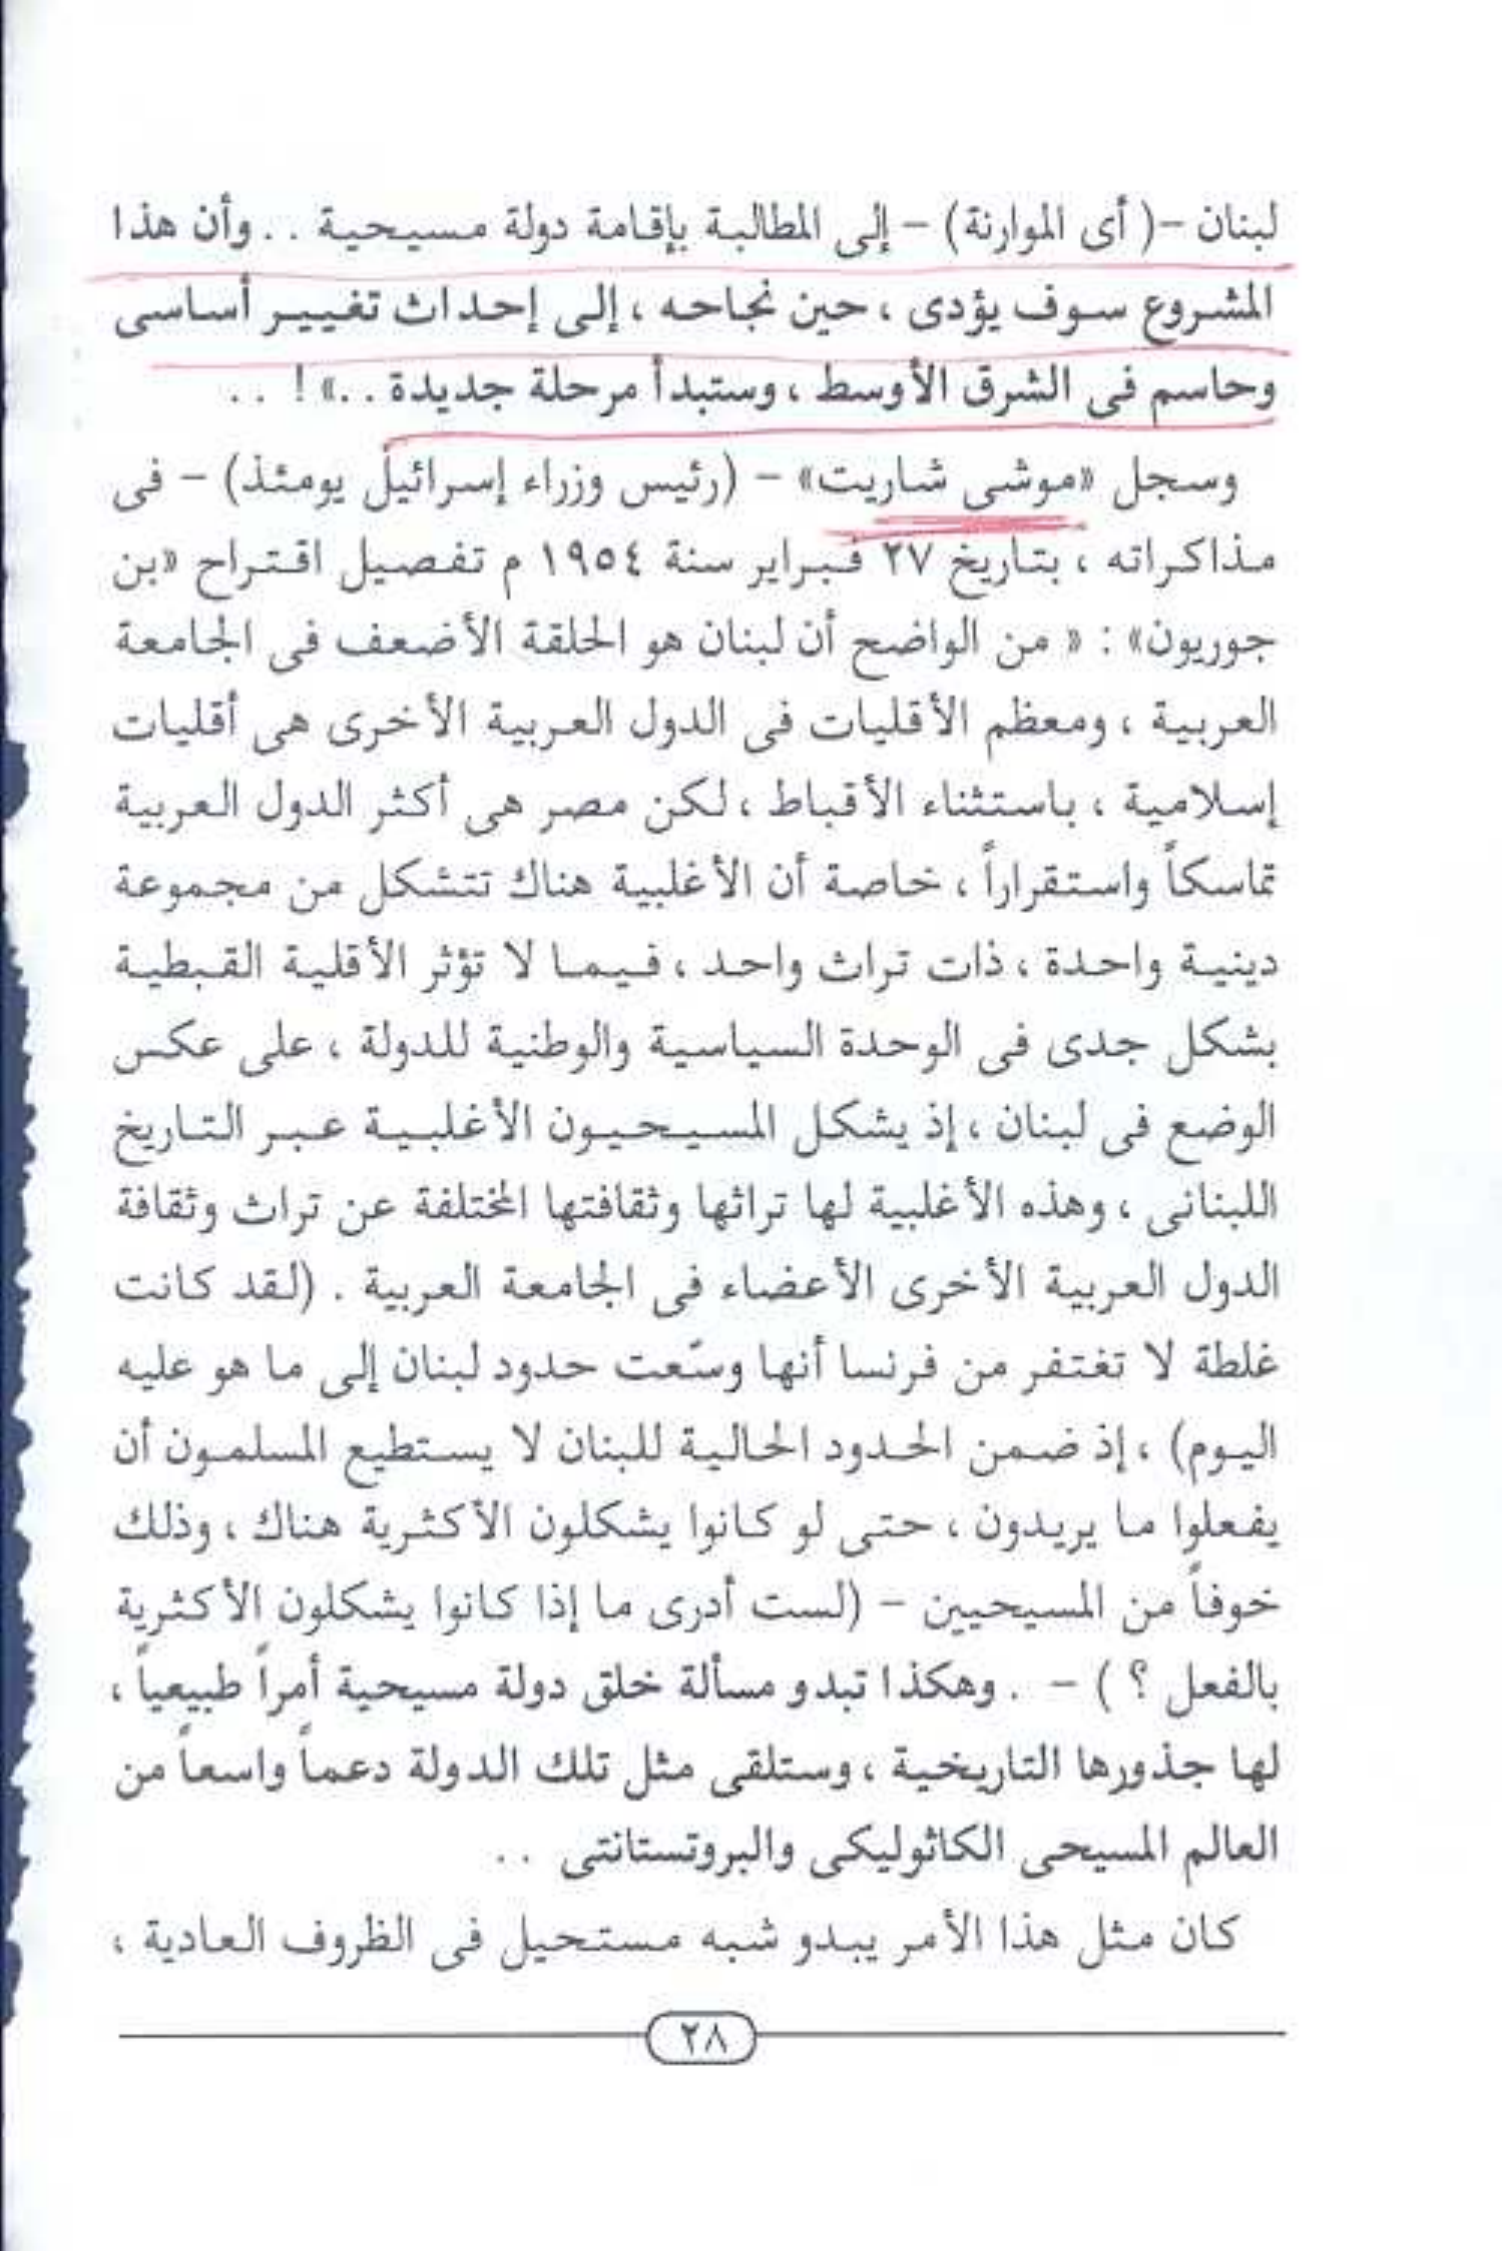 لبنان -( أى الموارنة) - إلى المطالبة بإقامة دولة مسيحية . . وأن هذا
المشروع سوف يؤدى ، حين نجاحه ، إلى إحداث تغيير أساسى
وحاسم فى الشرق الأوسط ، وستبدأ مرحلة جديدة . .» ! . .
وسجل «موشى شاريت» - (رئيس وزراء إسرائيل يومئذ) - فى
مذاكراته ، بتاريخ ٢٧ فبراير سنة ١٩٥٤ م تفصيل اقتراح «بن
جوريون» : « من الواضح أن لبنان هو الحلقة الأضعف فى الجامعة
العربية ، ومعظم الأقليات فى الدول العربية الأخرى هى أقليات
إسلامية ، باستثناء الأقباط ، لكن مصر هى أكثر الدول العربية
تماسكاً واستقراراً ، خاصة أن الأغلبية هناك تتشكل من مجموعة
دينية واحدة ، ذات تراث واحد ، فيما لا تؤثر الأقلية القبطية
بشكل جدى فى الوحدة السياسية والوطنية للدولة ، على عكس
الوضع فى لبنان ، إذ يشكل المسيحيون الأغلبية عبر التاريخ
اللبنانى ، وهذه الأغلبية لها تراثها وثقافتها المختلفة عن تراث وثقافة
الدول العربية الأخرى الأعضاء فى الجامعة العربية . (لقد كانت
غلطة لا تغتفر من فرنسا أنها وسّعت حدود لبنان إلى ما هو عليه
اليوم) ، إذ ضمن الحدود الحالية للبنان لا يستطيع المسلمون أن
يفعلوا ما يريدون ، حتى لو كانوا يشكلون الأكثرية هناك ، وذلك
خوفاً من المسيحيين - (لست أدرى ما إذا كانوا يشكلون الأكثرية
بالفعل ؟ ) - . وهكذا تبدو مسألة خلق دولة مسيحية أمراً طبيعياً ،
لها جذورها التاريخية ، وستلقى مثل تلك الدولة دعماً واسعاً من
العالم المسيحى الكاثوليكى والبروتستانتى . .
كان مثل هذا الأمر يبدو شبه مستحيل فى الظروف العادية ،
٢٨